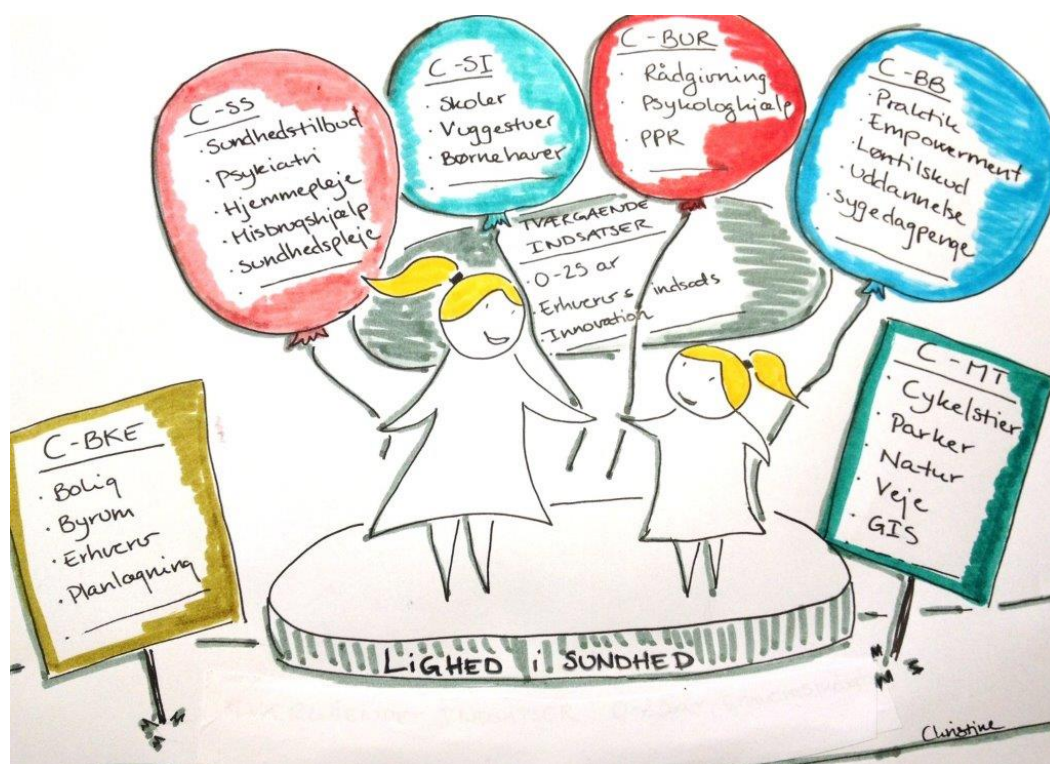 C-SS
· Sundhedstilbud
· Psykiatri
· Hjemmepleje
· Misbrugshjælp
· Sundhedspleje
C-SI
· Skoler
· Vuggestuer
· Børnehaver
C-BUR
· Rådgivning
· Psykologhjælp
· PPR
C-BB
· Praktik
· Empowerment
· Løntilskud
· Uddannelse
· Sygedagpenge
TVÆRGÅENDE
INDSATSER
· 0-25 år
· Erhvervsindsats
· Innovation
C-BKE
· Bolig
· Byrum
· Erhverv
· Planlægning
C-MT
· Cykelstier
· Parker
· Natur
· Veje
· GIS
LIGHED i SUNDHED
Christine